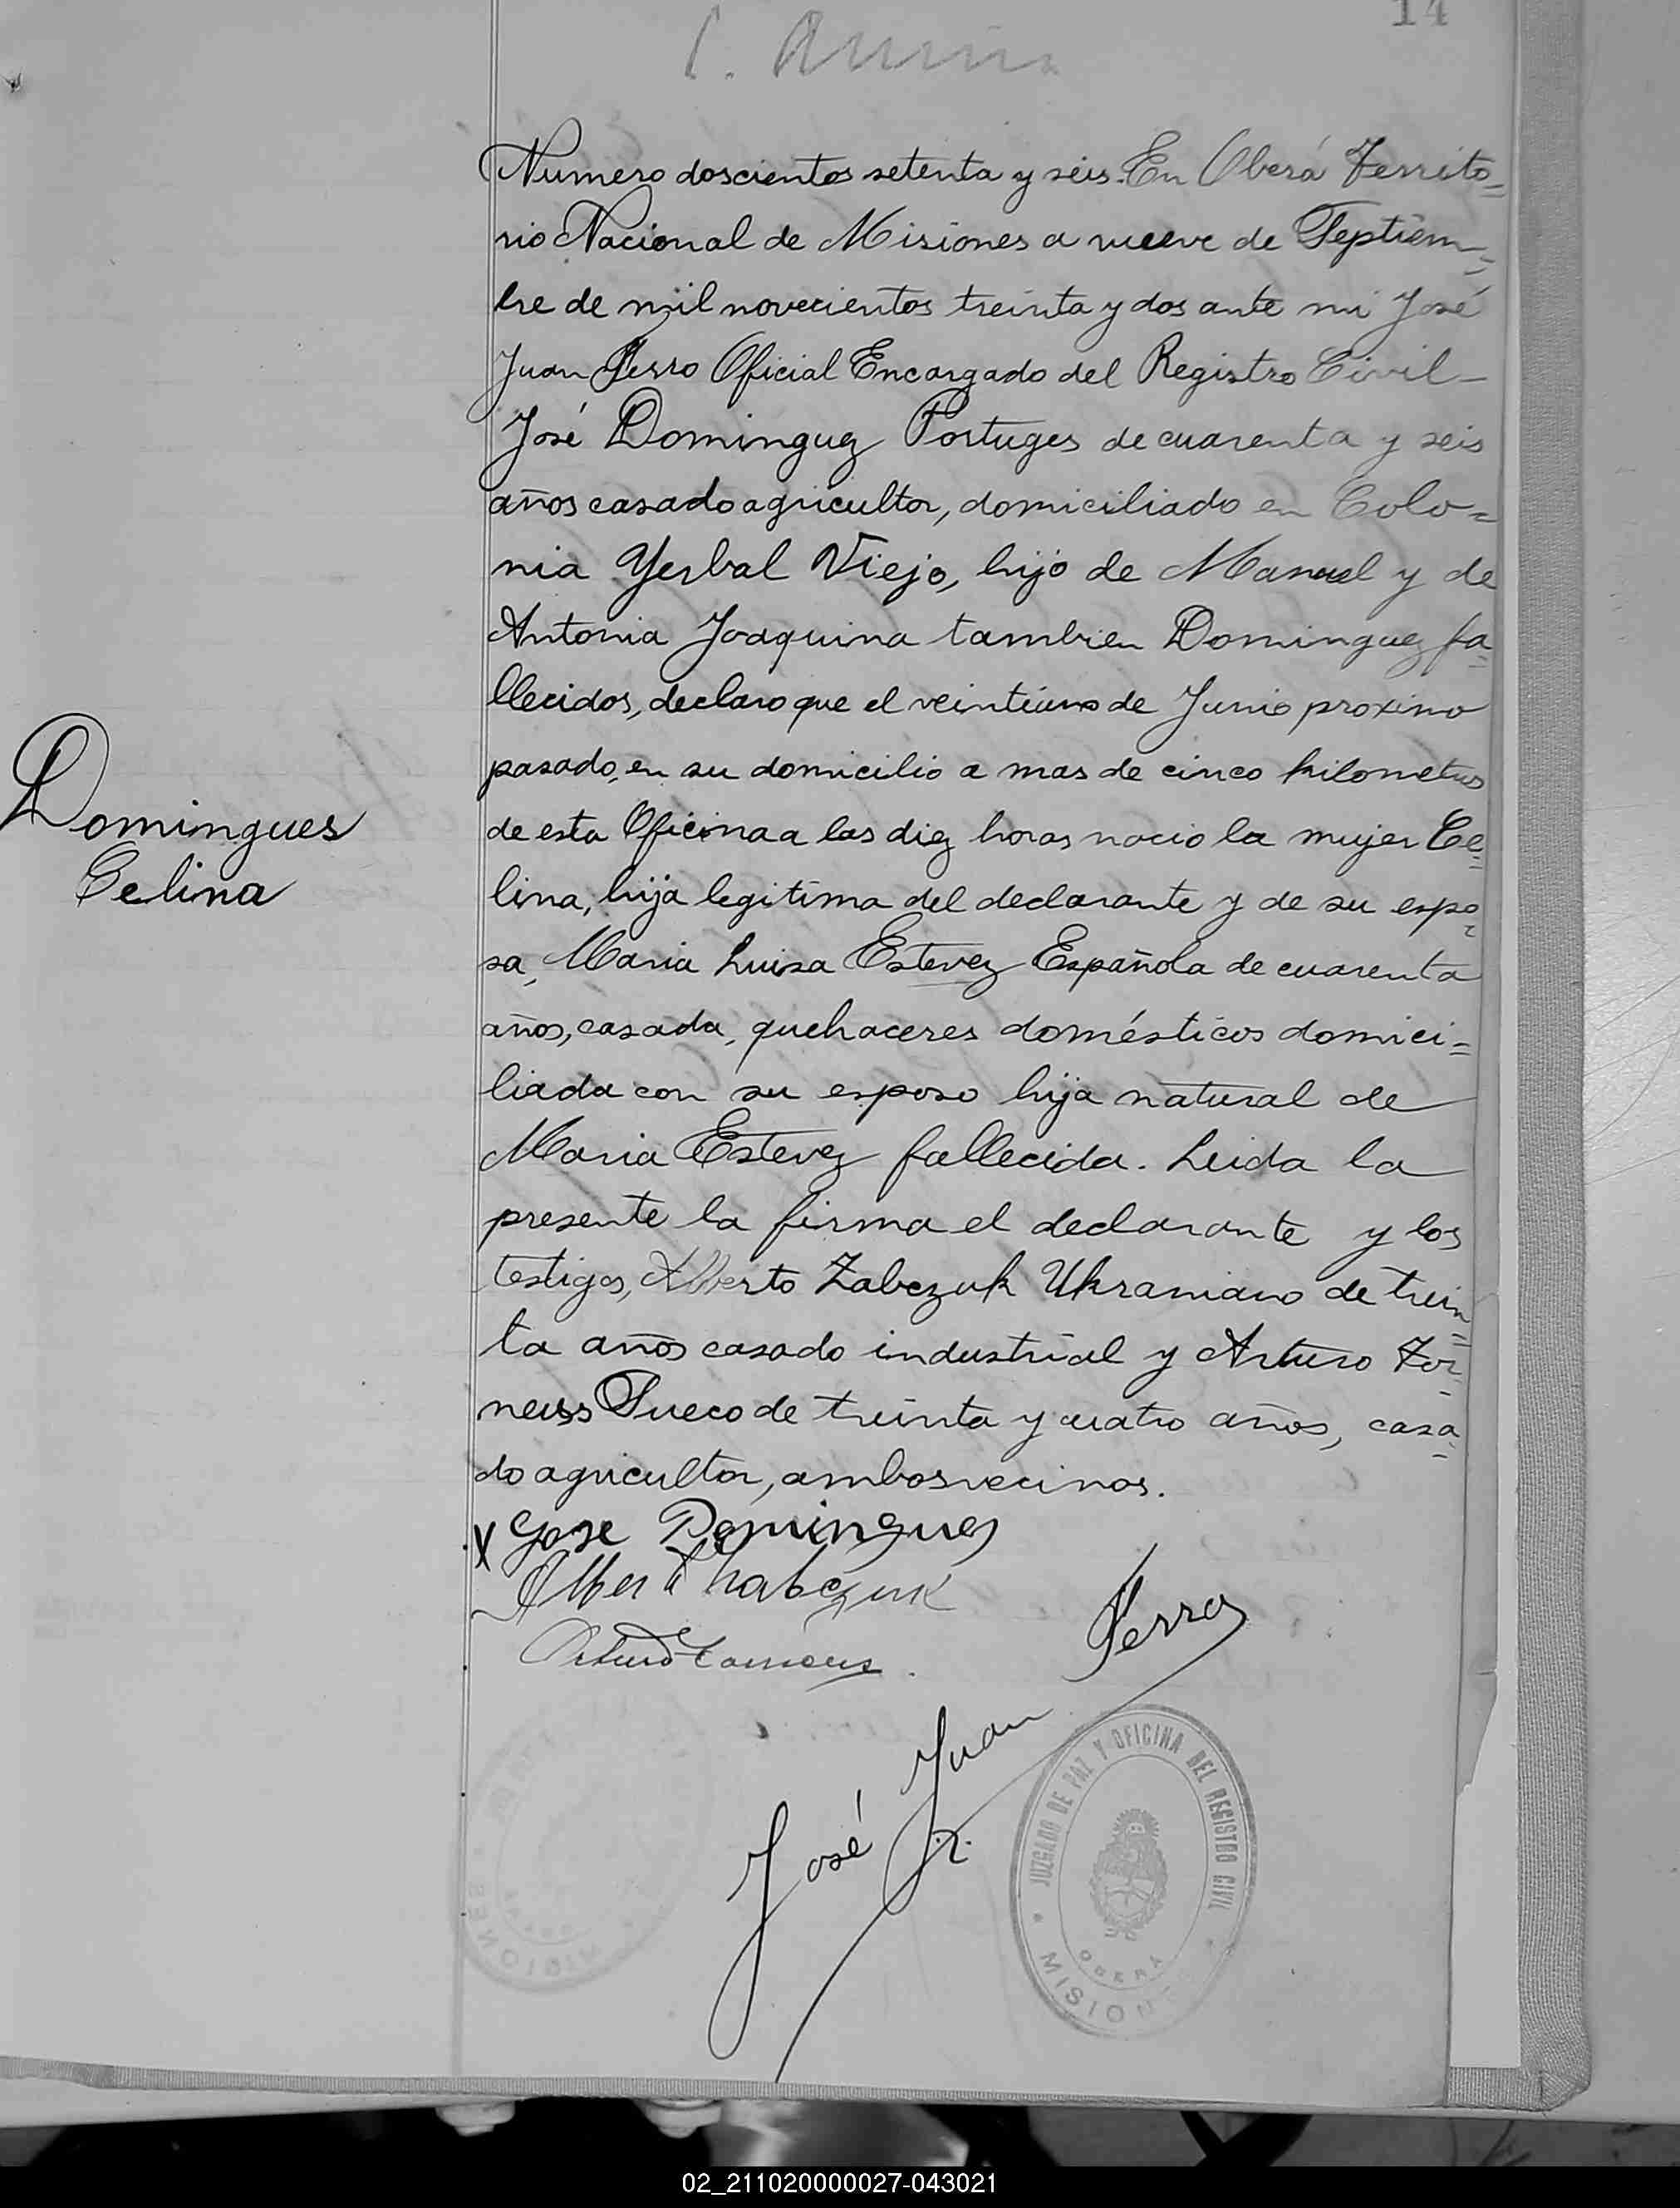 14
Numero doscientos setenta y seis. En Oberá Territo=
rio Nacional de Misiones a nueve de Septiem=
bre de mil novecientos treinta y dos ante mi José
Juan Ferro Oficial Encargado del Registro Civil-
José Dominguez Portuges de cuarenta y seis
años casado agricultor, domiciliado en Colo=
nia Yerbal Viejo, hijo de Manuel y de
Antonia Joaquina tambien Dominguez fa=
llecidos, declaro que el veintiuno de Junio proximo
pasado, en su domicilio a mas de cinco kilometros
de esta Oficina a las diez horas nacio la mujer Ce=
lina, hija legitima del declarante y de su espo=
sa, Maria Luisa Estevez Española de cuarenta
años, casada, quehaceres domésticos domici=
liada con su esposo hija natural de
Maria Estevez fallecida. Leida la
presente la firma el declarante y los
testigos, Alberto Zabczuk Ukraniano de trein=
ta años casado industrial y Arturo
Sueco de treinta y cuatro años, casa=
do agricultor, ambos vecinos.
Domingues
Celina
X Jose Domingues
Arturo
José Juan Ferro
JUZGADO DE PAZ Y OFICINA DEL REGISTRO CIVIL
OBERÁ
02_211020000027-043021